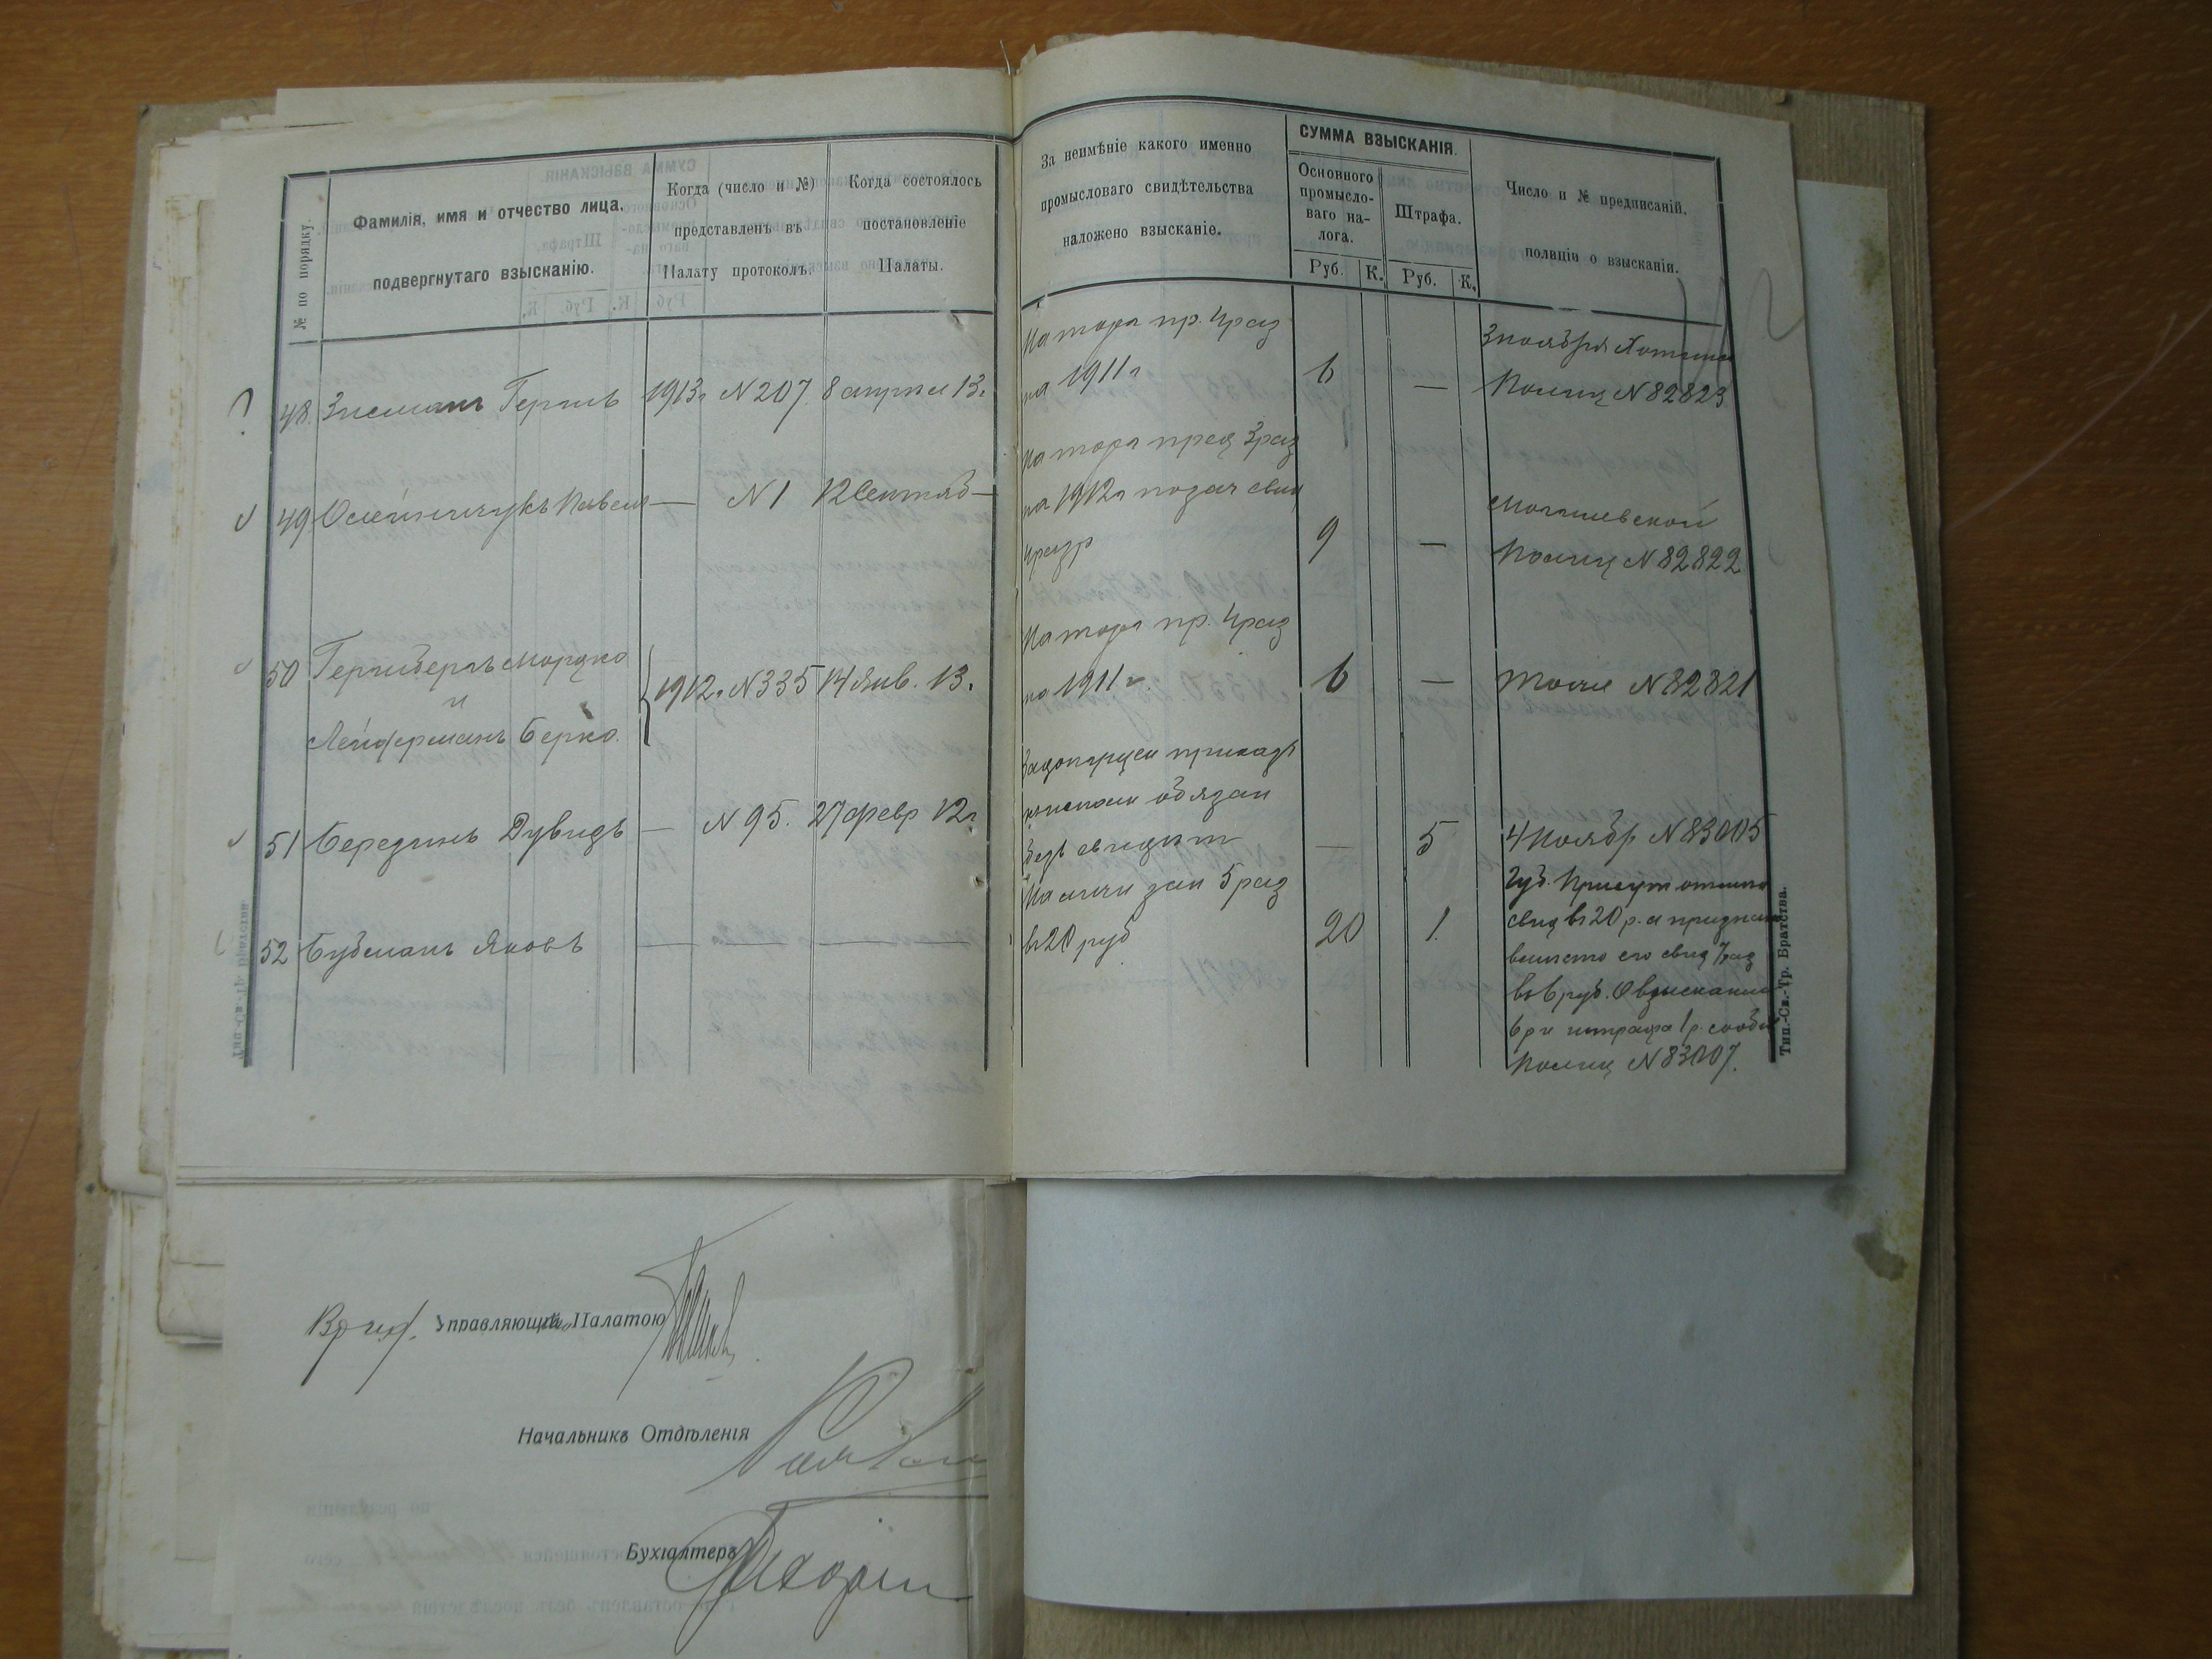 № по порядку.
Фамилія, имя и отчество лица,
подвергнутаго взысканію.
Когда (число и №)
представленъ въ
Палату протоколъ.
Когда состоялось
постановленіе
Палаты.
За неимѣніе какого именно
промысловаго свидѣтельства
наложено взысканіе.
СУММА ВЗЫСКАНІЯ.
Основного
промысло-
ваго на-
лога.
Штрафа.
Руб. К. Руб. К.
Число и № предписаній.
полиціи о взысканіи.
48. Зисманъ Гершъ 1913г N 207 8 апрѣля 13г
На торг пр. 4 раз
на 1911 г
6 —
3 ноября
Полиц N 82823
49 Олейничукъ Павелъ — N 1 12 Сентяб —
На торг пред 3 раз
на 1912г
4 раз
9 —
Могилевской
Полиц N 82822
50 Гершбергъ Мордко
и
Лейферманъ Берко.
1912г N 335 14 Янв. 13г
На торг пр. 4 раз
на 1911 г.
6 —
Тоже N 82821
51 Беренъ Дувидъ — N 95. 27 февр 12г
обязан
безъ
— 5
4 Ноябр N 83005
52 Бубманъ Яковъ — — —
На личн зан 5 раз
въ 20 руб
20 1.
Губ. Присут
свид въ 20 р. и
вмѣсто его свид 7 раз
въ 6 руб. О взысканіи
6 р и штрафа 1 р.
Полиц N 83007.
Тип.-Св.-Тр. Братства.
Управляющій Палатою
Начальникъ Отдѣленія
Бухгалтеръ